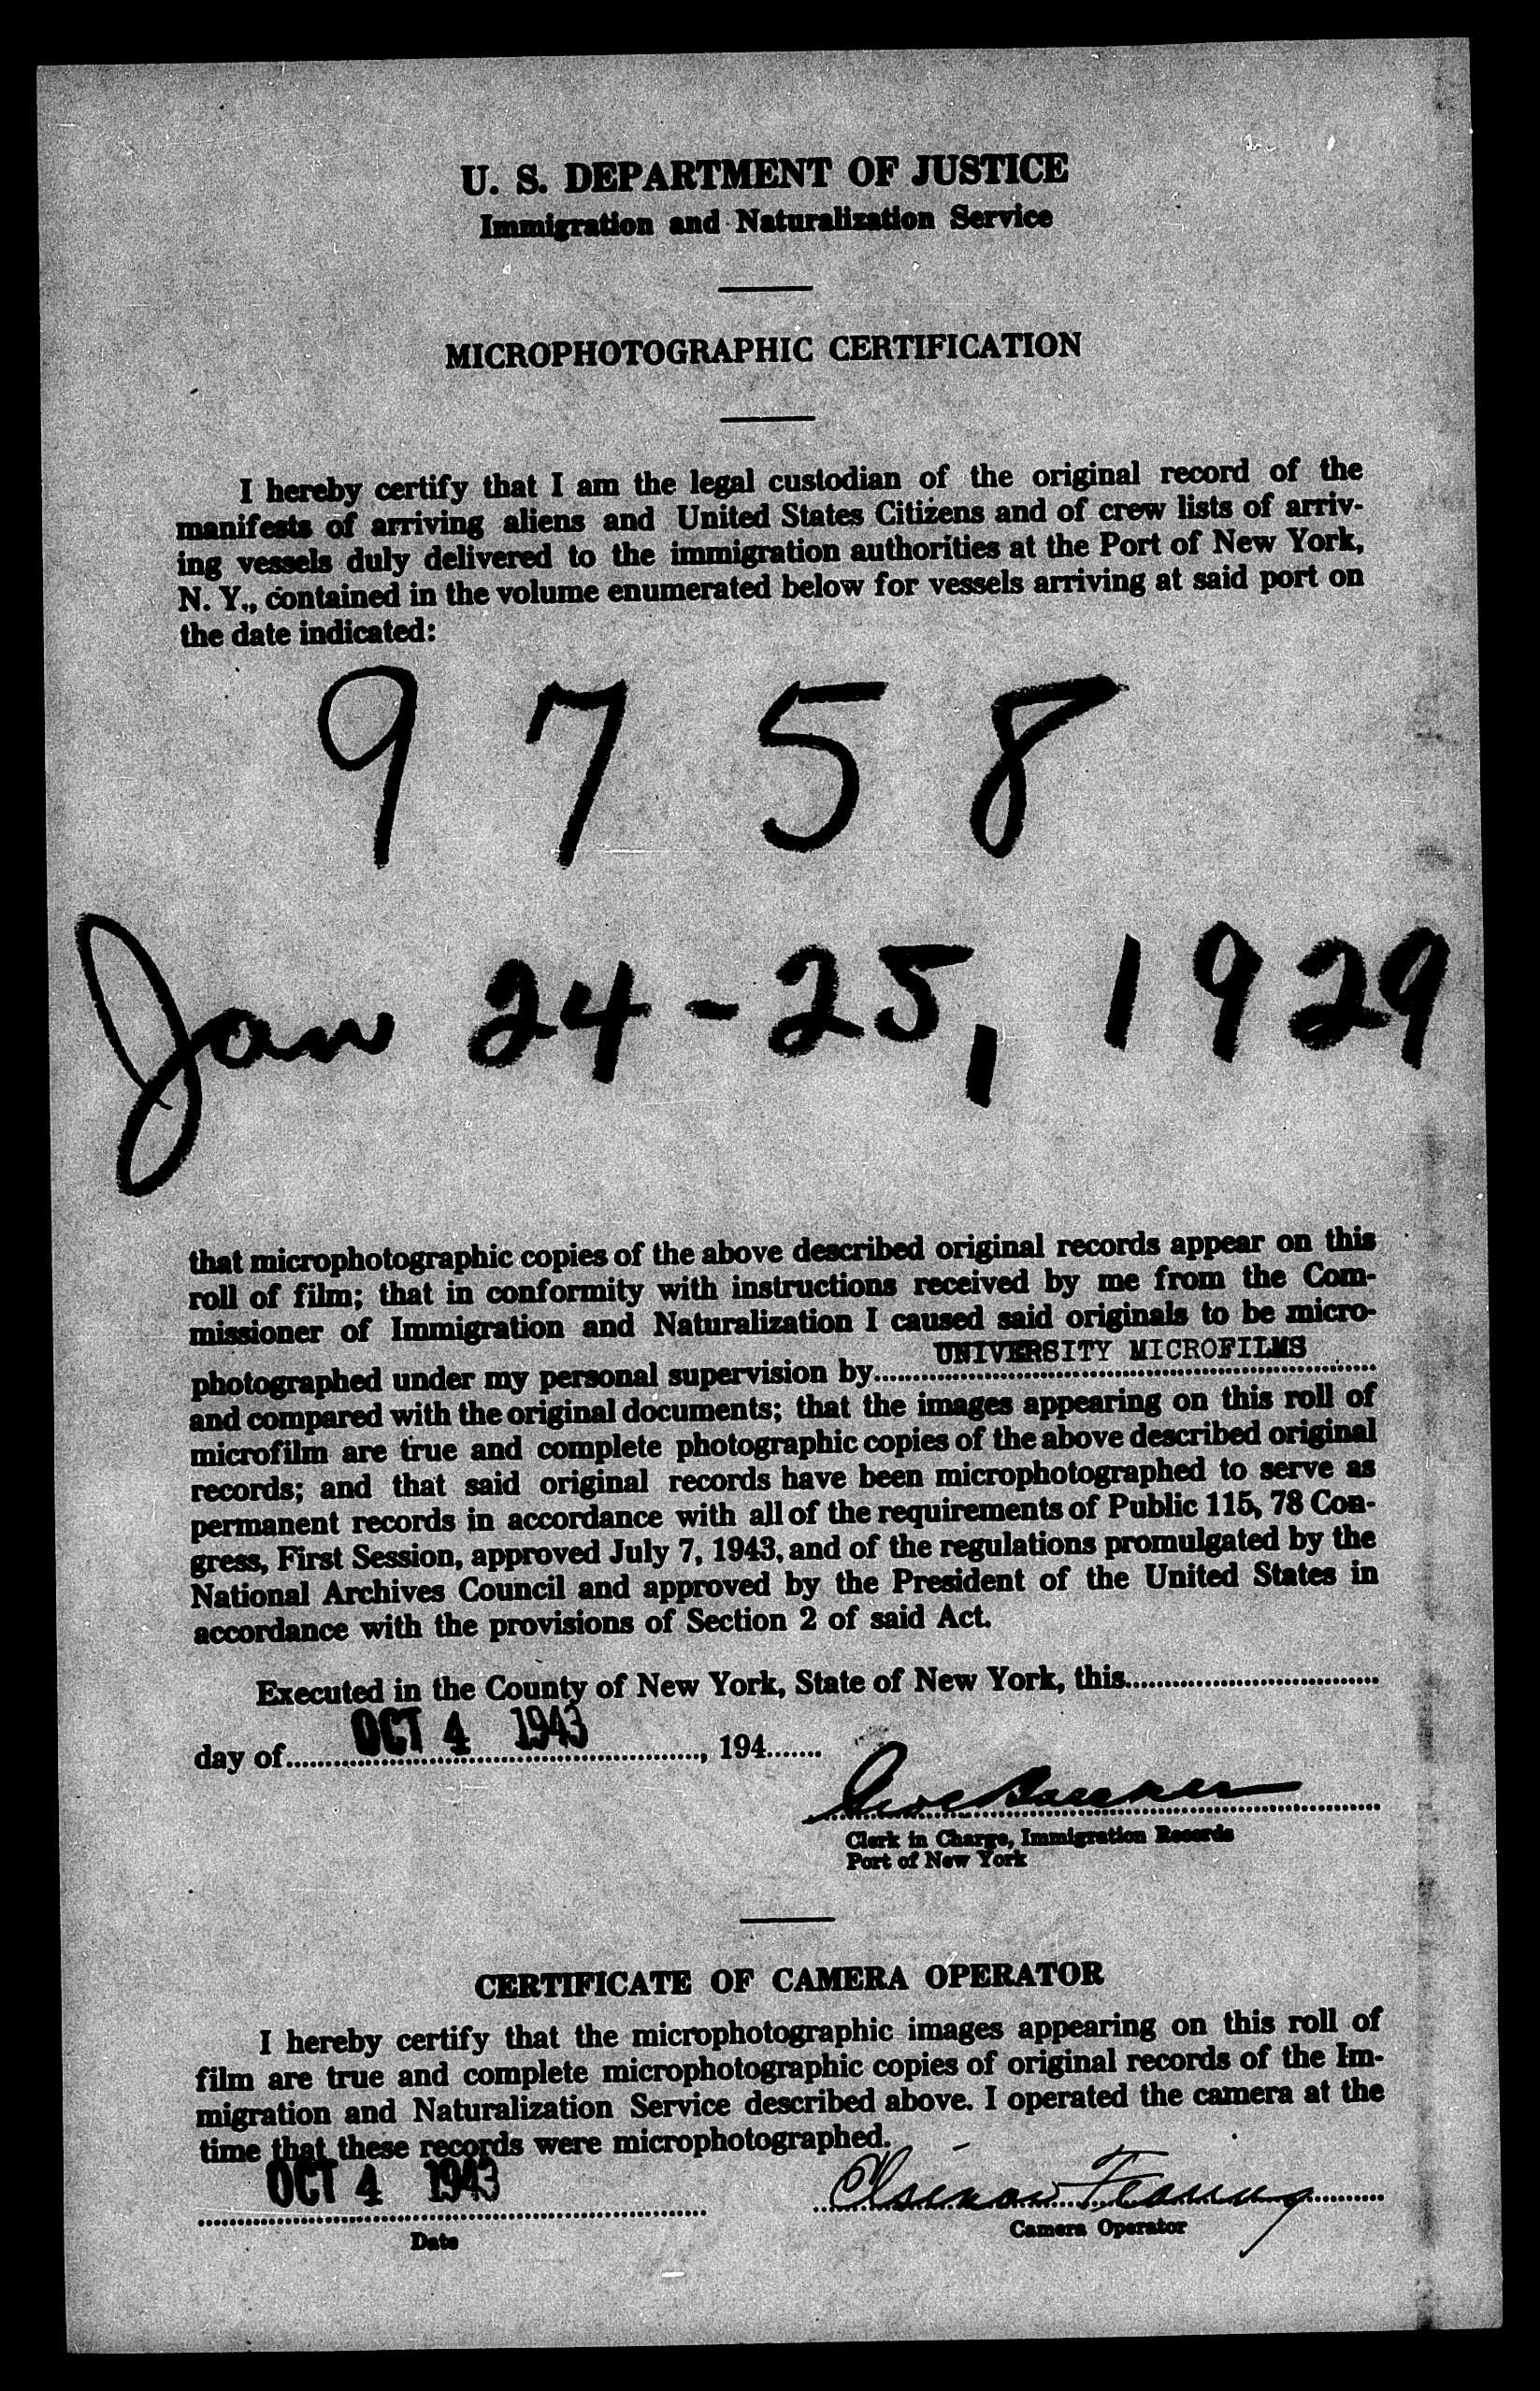 U. S. DEPARTMENT OF JUSTICE
Immigration and Naturalization Service
MICROPHOTOGRAPHIC CERTIFICATION
I hereby certify that I am the legal custodian of the original record of the
manifests of arriving aliens and United States Citizens and of crew lists of arriv-
ing vessels duly delivered to the immigration authorities at the Port of New York,
N. Y., contained in the volume enumerated below for vessels arriving at said port on
the date indicated:
9758
Jan 24-25, 1929
that microphotographic copies of the above described original records appear on this
roll of film; that in conformity with instructions received by me from the Com-
missioner of Immigration and Naturalization I caused said originals to be micro-
photographed under my personal supervision by UNIVERSITY MICROFILMS
and compared with the original documents; that the images appearing on this roll of
microfilm are true and complete photographic copies of the above described original
records; and that said original records have been microphotographed to serve as
permanent records in accordance with all of the requirements of Public 115, 78 Con-
gress, First Session, approved July 7, 1943, and of the regulations promulgated by the
National Archives Council and approved by the President of the United States in
accordance with the provisions of Section 2 of said Act.
Executed in the County of New York, State of New York, this
day of OCT 4 1943, 194
Clerk in Charge, Immigration Records
Port of New York
CERTIFICATE OF CAMERA OPERATOR
I hereby certify that the microphotographic images appearing on this roll of
film are true and complete microphotographic copies of original records of the Im-
migration and Naturalization Service described above. I operated the camera at the
time that these records were microphotographed.
OCT 4 1943
Date
Camera Operator